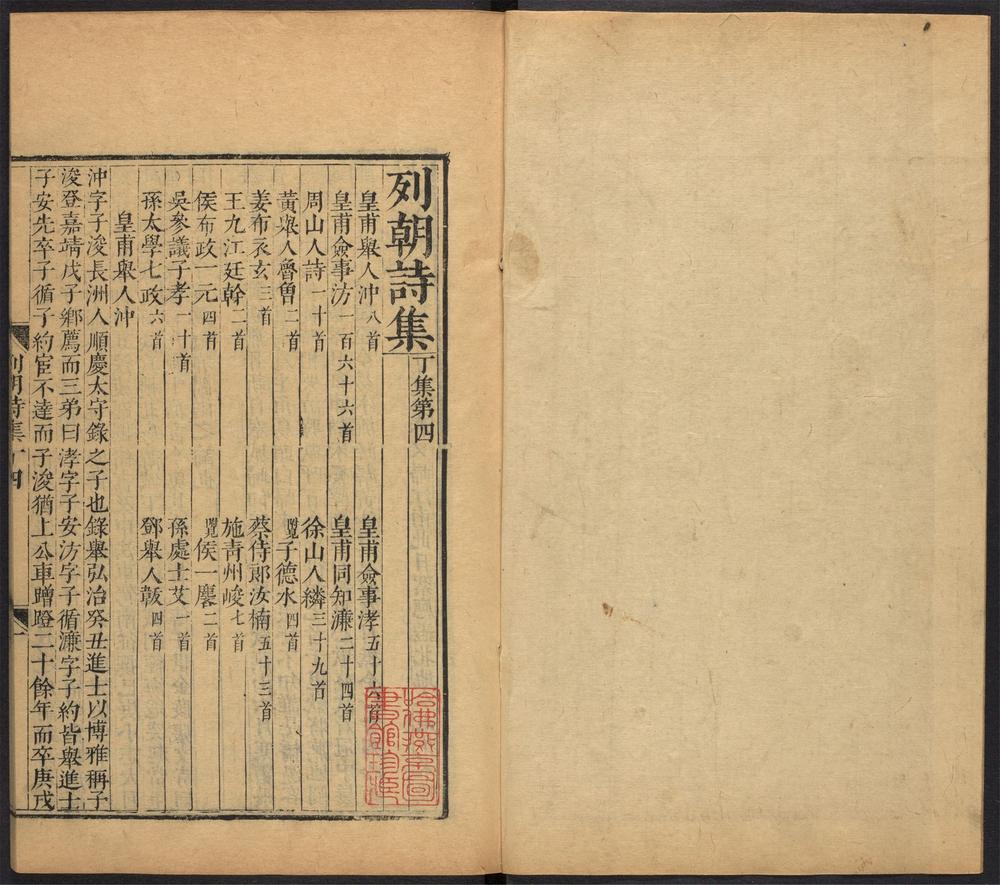 列朝詩集 丁集第四
皇甫舉人沖八首 皇甫僉事涍五十六首
皇甫僉事汸一百六十六首 皇甫同知濂二十四首
周山人詩一十首 徐山人繗三十九首
黃舉人魯曾二首 覽子德水四首
姜布衣玄三首 蔡侍郎汝楠五十三首
王九江廷幹二首 施青州峻七首
侯布政一元四首 覽侯一麐二首
吳參議子孝一十首 孫處士艾一首
孫太學七政六首 鄧舉人韍四首
皇甫舉人沖
沖字子浚長洲人順慶太守錄之子也錄舉弘治癸丑進士以博雅稱子
浚登嘉靖戊子鄉薦而三弟曰涍字子安汸字子循濂字子約皆舉進士
子安先卒子循子約宦不達而子浚猶上公車蹭蹬二十餘年而卒庚戌
列朝詩集丁四 一
哈佛燕京圖書館珍藏